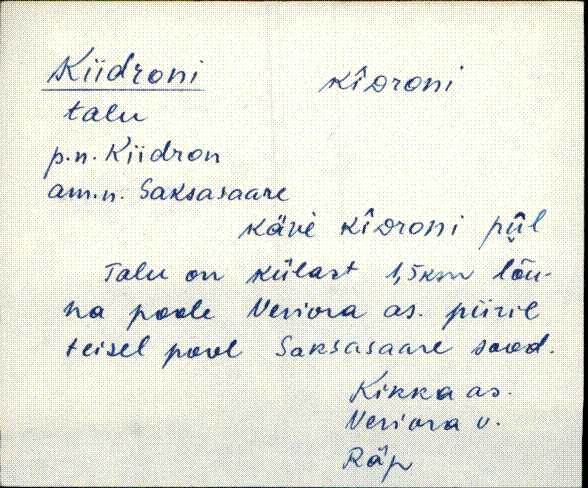 Kiidroni kîᴅroni
talu
p.n. Kiidron
am.n. Saksasaare
kävè kîᴅroni pǖl
Talu on külast 1,5km lõu-
na poole Veriora as. piiril
teisel pool Saksasaare sood.
Kikka as.
Veriora v.
Räp